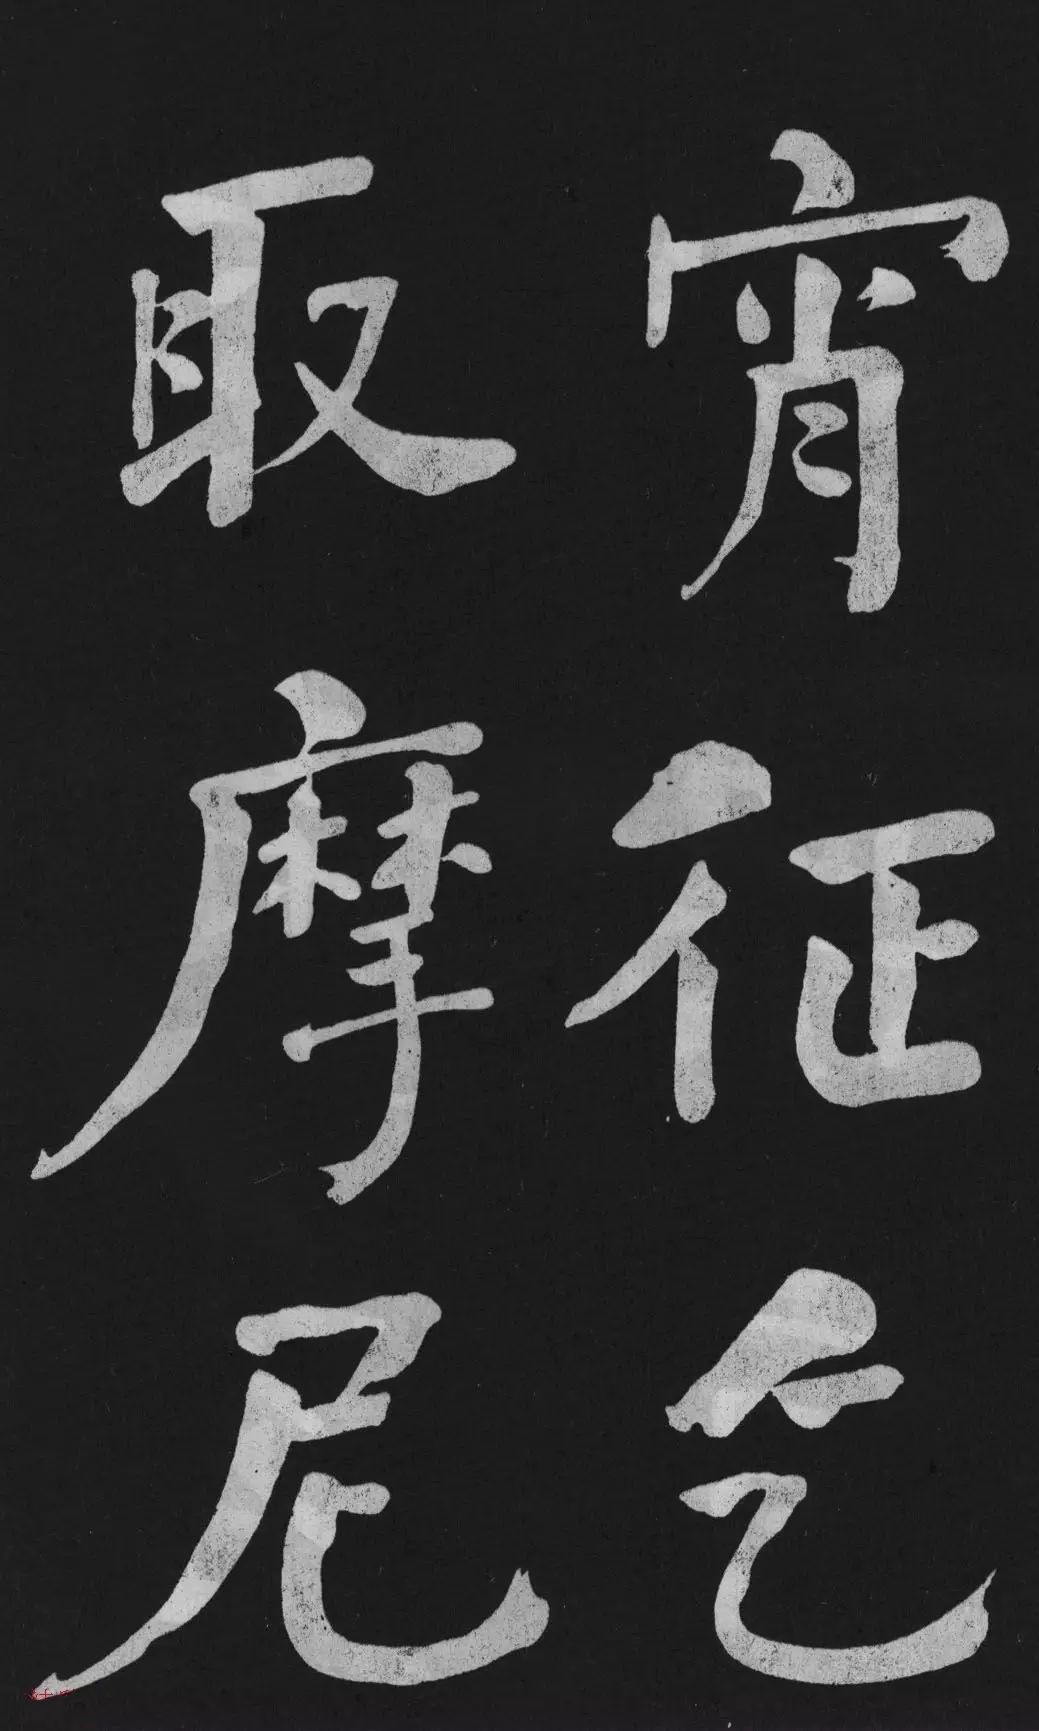 宵征乞
取摩尼